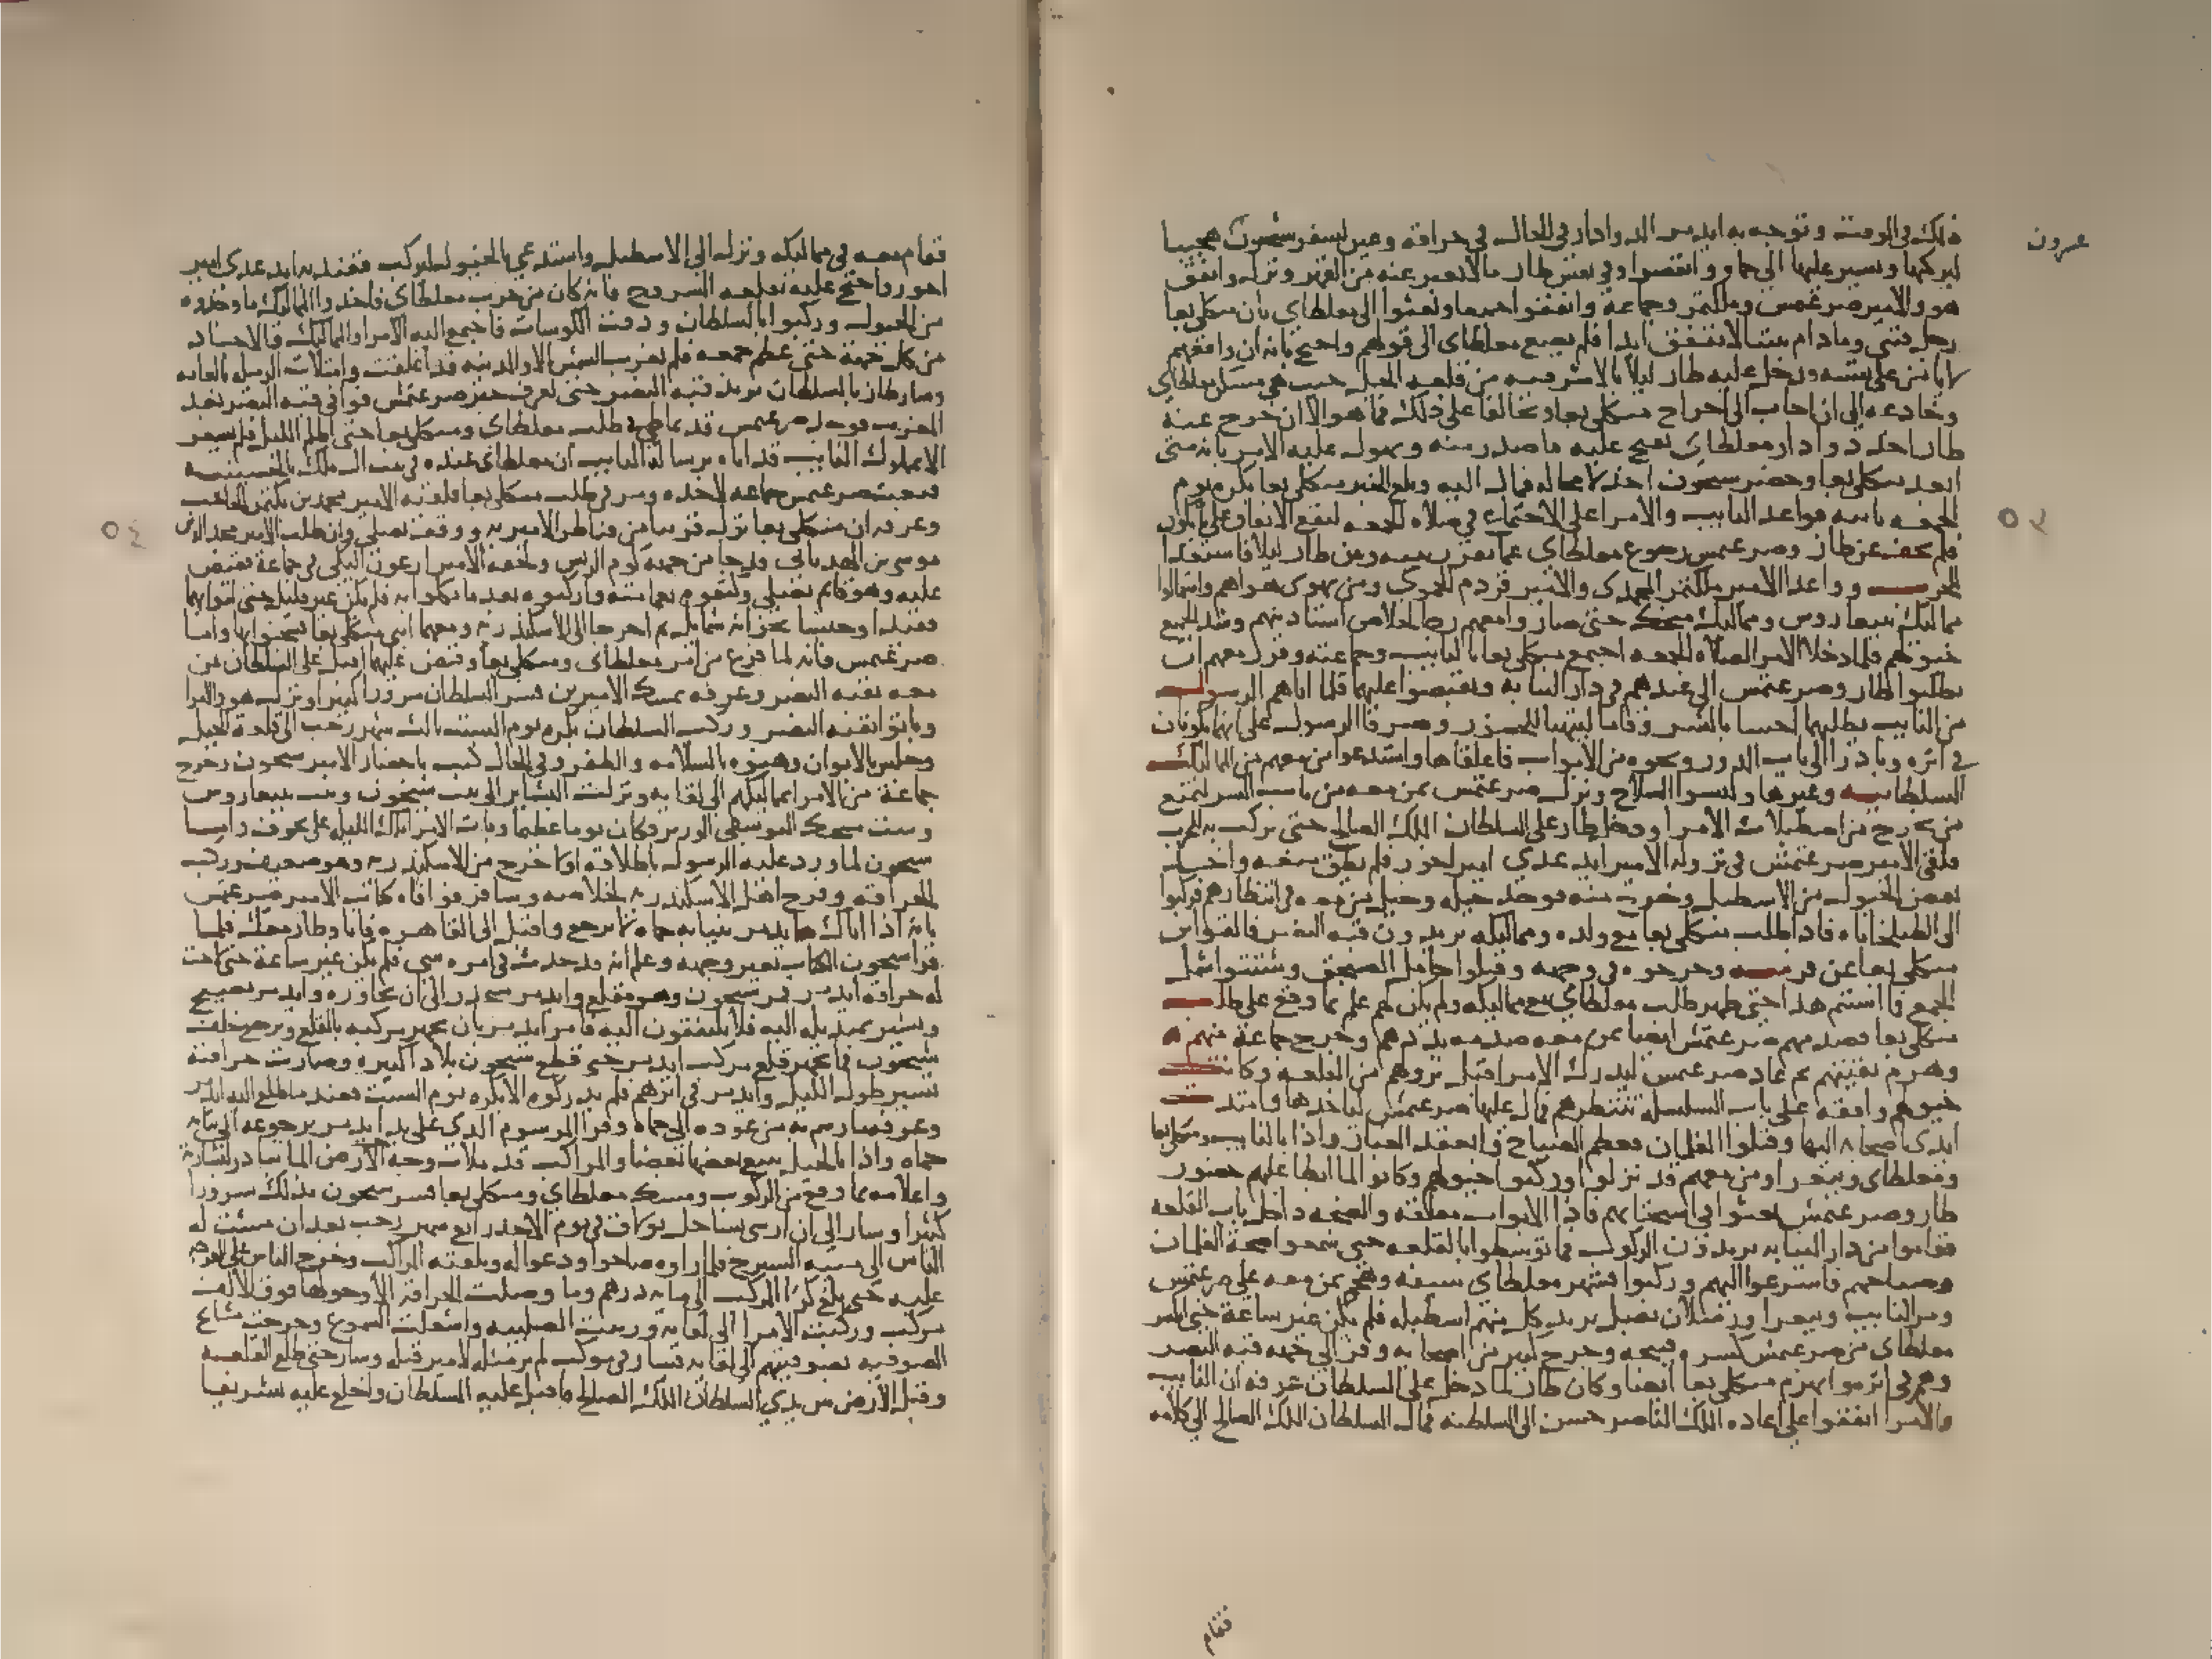 عسرون
ذلك في الوقت وتوجه به ايدمر الدوادار في الحال في حراقة وعين لسفر شيخون
ليركبها ويسير عليها الى حماه وانفضوا وفي نفس طاز مالا يعبر عنه من القهر ونزل واتفق
هو والامير صرغتمش وملكتمر وجماعة واتفقوا جميعا وبعثوا الى مغلطاي بان منكلي بغا
رجل فتني ومادام بيننا لا نتفق ابدا فلم يصغ مغلطاي الى قولهم واحتج بانه ان وافقهم
لا يامن على نفسه ودخل عليه طاز ليلا بالاشرفيه من قلعه الجبل حيث هي مسكن مغلطاي
وخادعه الى ان اجاب الى اخراج منكلي بغا وتحالفا على ذلك فما هو الا ان خرج عنه
طاز اخذ دوادار مغلطاي يقبح عليه ما صدر منه ويهول عليه الامر بانه متى
ابعد منكلي بغا وحضر شيخون اخذ لا محاله فمال اليه وبلغ الخبر منكلي بغا بكره يوم
الجمعه ثانيه فواعد النايب والامرا على الاجتماع في صلاه الجمعه ليقع الاتفاق على ما يكون
فلم يخف عن طاز وصرغتمش رجوع مغلطاي عما تقرر بينه وبين طاز ليلا فاستعدا
للحرب وواعدا الامير ملكتمر المحمدي والامير قردم الحموي ومن يهوى هواهم واستمالوا
مماليك بيبغا روس ومماليك منجك حتى صاروا معهم رجا لخلاص استاديهم وشد الجميع
خيولهم فلما دخل الامرا لصلاه الجمعه اجتمع منكلي بغا بالنايب وجماعته وقرر معهم ان
يطلبوا طاز وصرغتمش الى عندهم في دار النيابه ويقبضوا عليهما فلما اتاهم الرسول
من النايب يطلبهما احسا بالشر وقاما ليتهيا للحضور وصرفا الرسول على انهما يكونان
في اثره وبادرا الى باب الدور ونحوه من الابواب فاغلقاها واستدعوا من معهم من المماليك
السلطانيه وغيرها ولبسوا السلاح ونزل صرغتمش بمن معه من باب السر ليمنع
من يخرج من اصطبلات الامرا ودخل طاز على السلطان الملك الصالح حتى يركب به للحرب
فلقي الامير صرغتمش في نزوله الامير ايدغدي امير اخور فلم يطق منعه واخذ
بعض الخيول من الاسطبل وخرج منه فوجد خيله وخيل من معه في انتظارهم فركبوا
الى الطبلخاناه فاذا طلب منكلي بغا مع ولده ومماليكه يريدون قبه النصر فالقوا ابن
منكلي بغا عن فرسه وجرحوه في وجهه وقتلوا حامل الصنجق وشتتوا شمل
الجميع فما استتم هذا حتى ظهر طلب مغلطاي مع مماليكه ولم يكن لهم علم بما وقع على طلب
منكلي بغا فصدمهم صرغتمش ايضا بمن معه صدمه بددهم وجرح جماعة منهم
وهزم بقيتهم ثم عاد صرغتمش ليدرك الامرا قبل نزولهم من القلعه وكانت
خيولهم واقفه على باب السلسله تنتظرهم فمال عليها صرغتمش لياخذها وامتدت
ايدي اصحابه اليها وقتلوا الغلمان فعظم الصياح وانعقد الغبار واذا بالنايب ومنكلي بغا
ومغلطاي وبيغرا ومن معهم قد نزلوا وركبوا خيولهم وكانوا لما ابطا عليهم حضور
طاز وصرغتمش بعثوا في استحثاثهم فاذا الابواب مغلقه والضجه داخل باب القلعه
فقاموا من دار النيابه يريدون الركوب فما توسطوا بالقلعه حتى سمعوا ضجة الغلمان
وصياحهم فاسرعوا اليهم وركبوا فشهر مغلطاي سيفه وهجم بمن معه على صرغتمش
ومر النايب وبيغرا ورسلان بصل يريد كل منهم اسطبله فلم يكن غير ساعة حتى انكسر
مغلطاي من صرغتمش كسره قبيحه وجرح كثير من اصحابه وفر الى جهه قبه النصر
وهم في اثره وانهزم منكلي بغا ايضا وكان طاز لما دخل على السلطان عرفه ان النايب
والامرا اتفقوا على اعاده الملك الناصر حسن الى السلطنه فمال السلطان الملك الصالح الى كلامه
فقام
٥٣
فقام معه في مماليكه ونزل الى الاسطبل واستدعى بالخيول ليركب فقعد به ايدغدي امير
اخور واحتج عليه بقله السروج فانه كان من حزب مغلطاي فاخذوا المماليك ما وجدوه
من الخيول وركبوا بالسلطان ودقت الكوسات فاجتمع اليه الامرا والمماليك والاجناد
من كل جهة حتى عظم جمعه فلم تغرب الشمس الا والمدينه قد اغلقت وامتلات الرميله بالعامه
وسار طاز بالسلطان يريد قبه النصر حتى يعرف خبر صرغتمش فوافى قبه النصر بعد
المغرب فوجد صرغتمش قد تمادى في طلب مغلطاي ومنكلي بغا حتى اظلم الليل فلم يشعر
الا بمملوك النايب قد اتاه برساله النايب ان مغلطاي عنده في بيت ال ملك بالحسينيه
فبعث صرغتمش جماعه لاخذه ومر في طلب منكلي بغا فلقيه الامير محمد بن بكتمر الحاجب
وعرفه ان منكلي بغا نزل قريبا من قناطر الاميريه ووقف يصلي وان طلب الامير مجد الدين
موسى بن الهذباني قد جا من جهه كوم الريش ولحقه الامير ارغون البكي في جماعة فقبض
عليه وهو قايم يصلي وكتفوه بعمامته واركبوه بعد ما نكلوا به فلم يكن غير قليل حتى اتوا بهما
فقيدا وحبسا بخزانه شمايل ثم اخرجا الى الاسكندريه ومعهما ابني منكلي بغا فسجنوا بها واما
صرغتمش فانه لما فرغ من امر مغلطاي ومنكلي بغا وقبض عليهما اقبل على السلطان بمن
معه بقبه النصر وعرفه بمسك الاميرين فسر السلطان سرورا كبيرا ونزل هو والامرا
وباتوا بقبه النصر وركب السلطان بكره يوم السبت ثالث شهر رجب الى قلعة الجبل
وجلس بالايوان وهنوه بالسلامه والظفر وفي الحال كتب باحضار الامير شيخون وخرج
جماعة من الامرا بمماليكهم الى لقايه ونزلت البشاير الى بيت شيخون وبيت بيبغا روس
وبيت منجك اليوسفي الوزير وكان يوما عظيما وبات الامرا تلك الليله على تخوف واما
شيخون لما ورد عليه الرسول باطلاقه اولا خرج من الاسكندريه وهو ضعيف وركب
الحراقه وفرح اهل الاسكندريه لخلاصه وسافر فوافاه كتاب الامير صرغتمش
بانه اذا اتاك ايدمر بنيابه حماه لا ترجع واقبل الى القاهره فانا وطاز معك فلما
قرا شيخون الكتاب تغير وجهه وعلم انه قد حدث في امره شي فلم يكن غير ساعة حتى لاحت
له حراقه ايدمر فمر شيخون وهو مقلع وايدمر منحدر الى ان تجاوزه وايدمر يصيح
ويشير بمنديله اليه فلا يلتفتون اليه فامر ايدمر بان تجهز مركبه بالقلع وترجع خلف
شيخون فما تجهز قلع مركب ايدمر حتى قطع شيخون بلادا كثيره وصارت حراقته
تسير طول الليل وايدمر في اثرهم فلم يدركوه الا بكره يوم السبت فعند ما طلع اليه ايدمر
وعرفه ما رسم به من عوده الى حماه وقرا المرسوم الذي على يد ايدمر برجوعه الى نيابه
حماه واذا بالخيل يتبع بعضها بعضا والمراكب قد ملات وجه الارض الما تبادر لبشارته
واعلامه بما وقع من الركوب ومسك مغلطاي ومنكلي بغا فسر شيخون بذلك سرورا
كثيرا وسار الى ان ارسى بساحل بولاق في يوم الاحد رابع شهر رجب بعد ان مشت له
الناس الى منيه السيرج فلما راوه صاحوا ودعوا له وتلقته المراكب وخرج الناس على الفرجه
عليه حتى بلغ كرا المركب الى مايه درهم وما وصلت الحراقه الا وحولها فوق الالف
مركب وركبت الامرا الى لقايه وزينت الصليبه واشعلت الشموع وخرجت مشايخ
الصوفيه بصوفيتهم الى لقايه فسار في موكب لم ير مثله لامير قبله وسار حتى طلع القلعه
وقبل الارض بين يدي السلطان الملك الصالح فاقبل عليه السلطان واخلع عليه تشريفا
٥٤